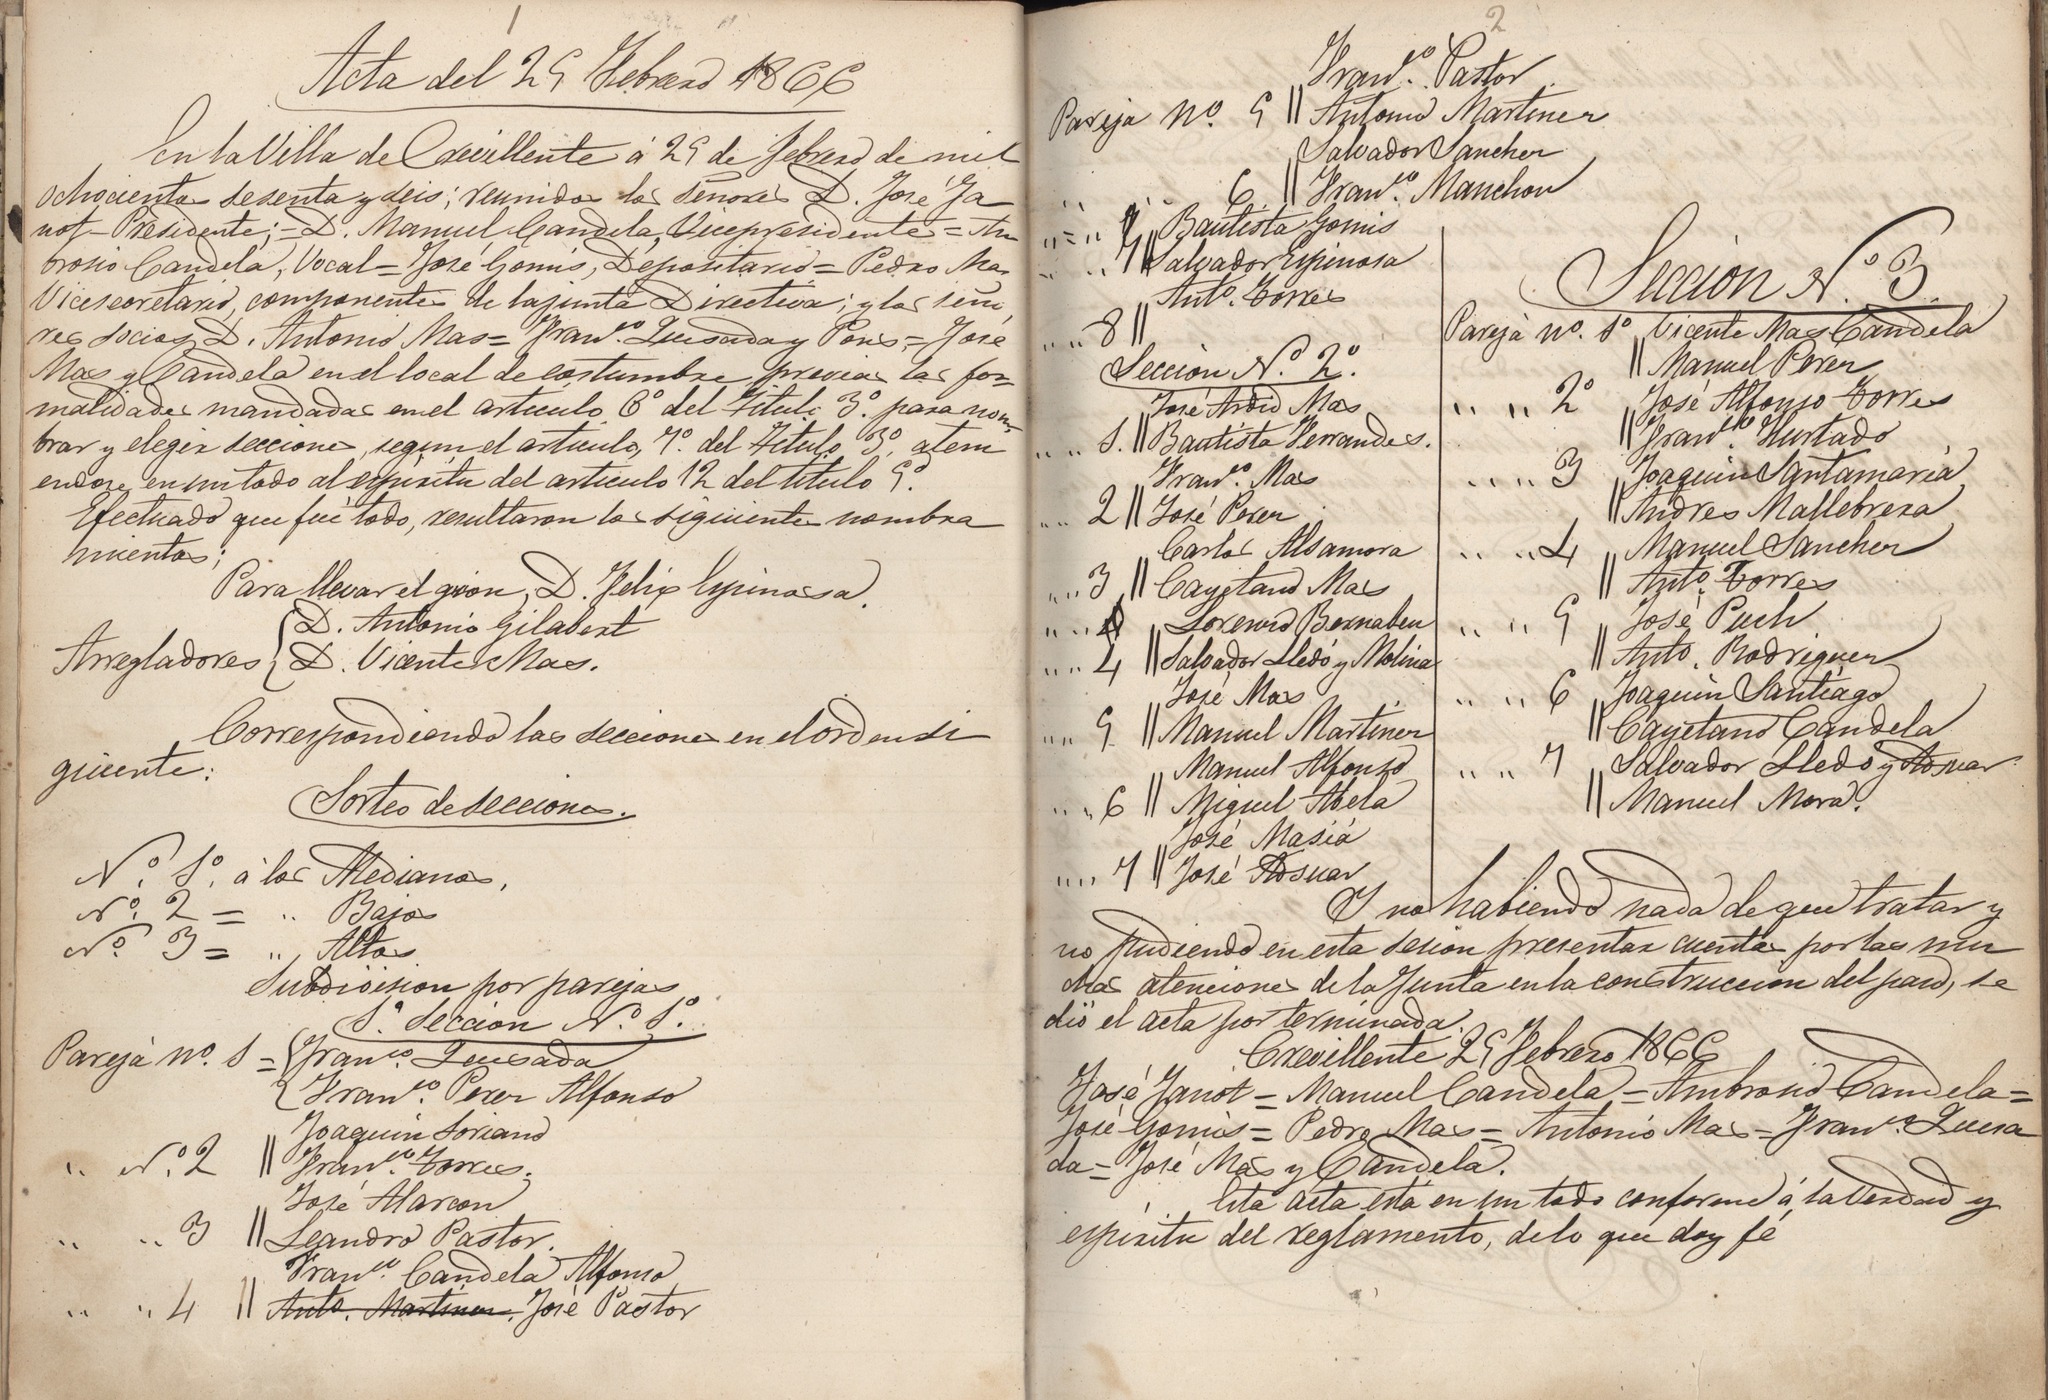 1
Acta del 25 Febrero 1866
En la Villa de Crevillente á 25 de febrero de mil
ochocientos sesenta y seis; reunidos los Señores D. José Ja
not- Presidente;= D. Manuel Candela, Vicepresidente = Am
brosio Candela, Vocal = José Gomis, Depositario = Pedro Mas
Vicesecretario, componentes de la junta Directiva; y los seño
res socios D. Antonio Mas = Franco. Quesada y Pons,= José
Mas y Candela en el local de costumbre, previas las for
malidades mandadas en el articulo 6º del Titulo 3º. para nom
brar y elegir secciones, segun el articulo, 7º. del Titulo 3º, atem
endose en un todo al espíritu del articulo 12 del titulo 5º.
Efectuado que fué todo, resultaron los siguientes nombra
mientos;
Para llevar el guion, D. Felix Espinosa.
D. Antonio Gilabert
Arregladores D. Vicente Mas.
Correspondiendo las secciones en el orden si
guiente:
Sorteo de secciones.
Nº. 1º. á los Medianos,
Nº. 2 = " Bajos
Nº. 3 = " Altos
Subdivision por parejas
1ª Seccion Nº. 1º.
Pareja nº. 1 = Franco. Quesada
Franco. Perez Alfonso
Joaquin Soriano
" Nº. 2 || Franco. Torres.
José Alarcon
" " 3 || Leandro Pastor.
Franco. Candela Alfonso
" " 4 || Anto. Martinez. José Pastor
2
Franco. Pastor.
Pareja nº. 5 || Antonio Martinez
Salvador Sanchez
" " 6 || Franco. Manchon
Bautista Gomis
" " 7 || Salvador Espinosa
Anto. Torres
" " 8 ||
Sección Nº. 2º.
José Ardid Mas
" " 1. || Bautista Ferrandes.
Franco. Mas
" " 2 || José Perez
Carlos Alsamora
" " 3 || Cayetano Mas
" " Lorenzo Bernabeu
" " 4 || Salvador Lledó y Molina
José Mas
" " 5 || Manuel Martinez
Manuel Alfonso
" " 6 || Miguel Abela
José Masiá
" " 7 || José Asnar
Sección Nº. 3
Pareja nº. 1º Vicente Mas Candela
|| Manuel Perez
" " 2º José Alfonso Torres
|| Franco. Hurtado
" " 3 Joaquin Santamaria
|| Andres Mallebrera
" " 4 Manuel Sanchez
|| Anto. Torres
" " 5 José Puch
|| Anto. Rodriguez
" " 6 Joaquin Santiago
|| Cayetano Candela
" " 7 Salvador Lledó y Asnar
|| Manuel Mora.
Y no habiendo nada de que tratar y
no pudiendo en esta sesion presentar cuentas por las mu
chas atenciones de la Junta en la construccion del paso, se
dió el acta por terminada.
Crevillente 25 Febrero 1866
José Janot = Manuel Candela = Ambrosio Candela =
José Gomis = Pedro Mas = Antonio Mas = Franco. Quesa
da = José Mas y Candela.
Esta acta está en un todo conforme á la verdad y
espíritu del reglamento, de lo que doy fé